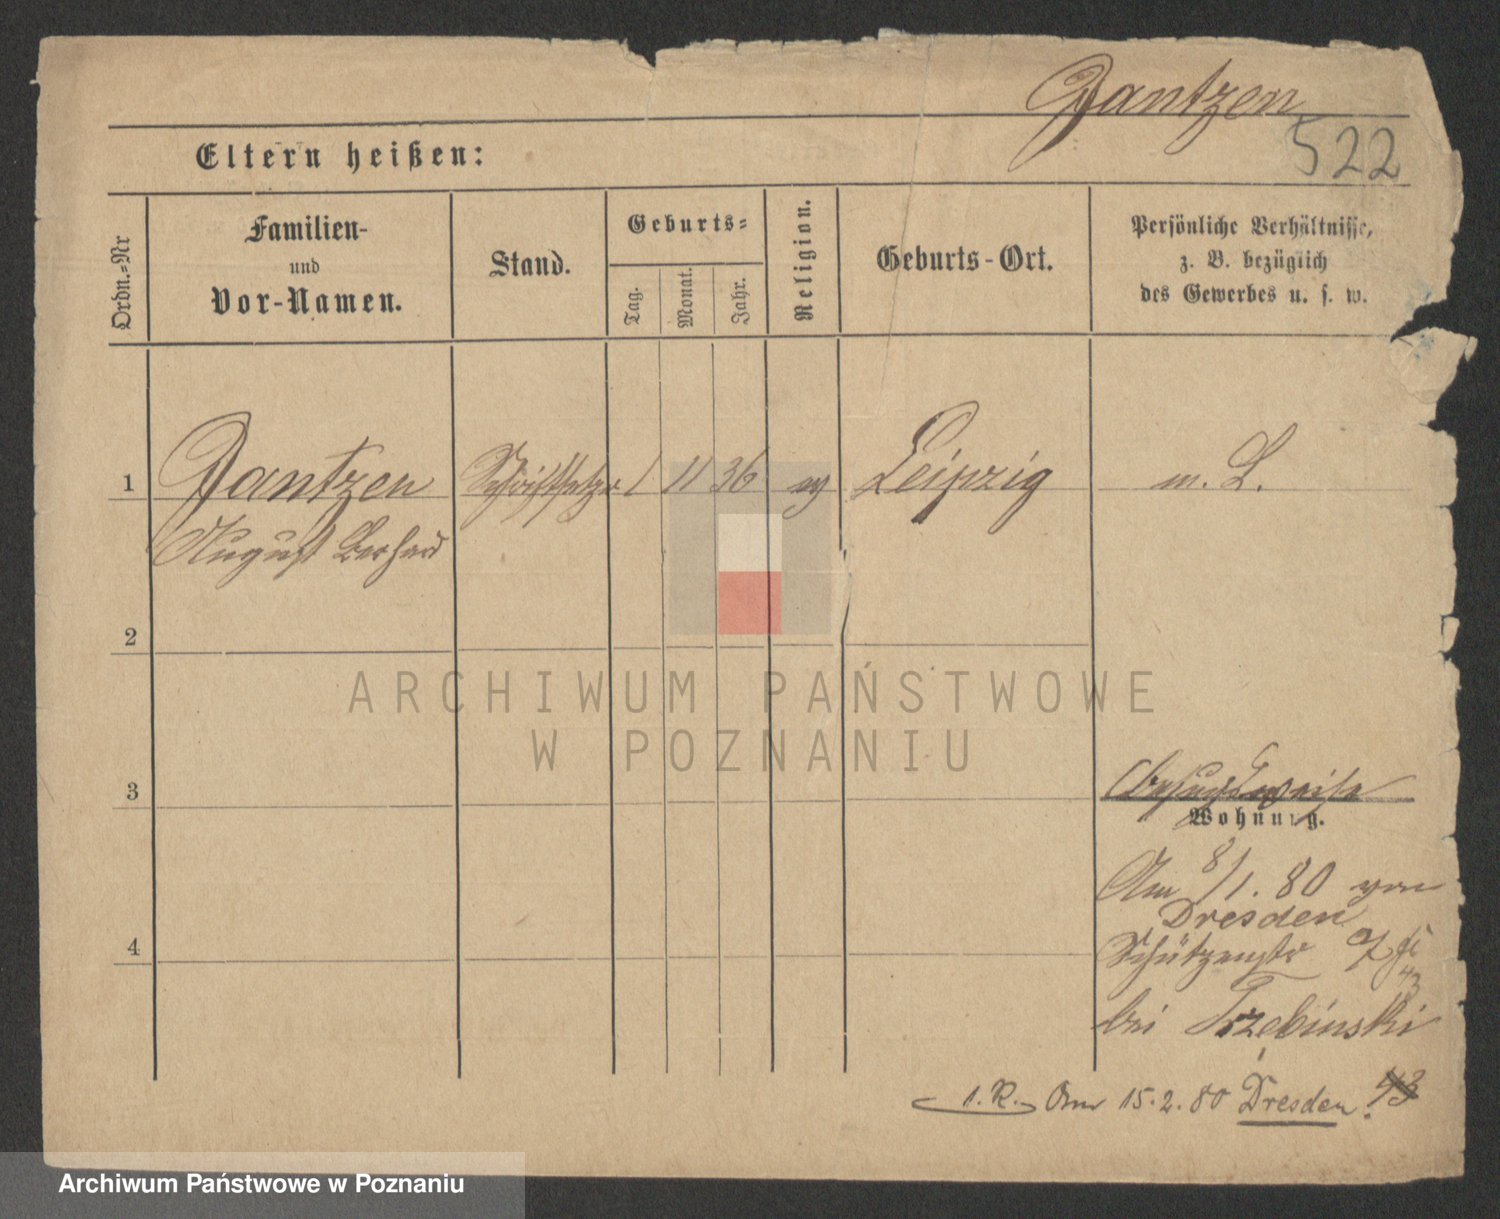 Dantzen
522
Eltern heißen:
Ordn.-Nr
Familien-
und
Vor-Namen.
Stand.
Geburts-
Tag.
Monat.
Jahr.
Religion.
Geburts-Ort.
Persönliche Verhältnisse,
z. B. bezüglich
des Gewerbes u. s. w.
1 Dantzen Schriftsetzer 1 11 36 ev Leipzig m. L.
August
2
3
Besuchsweise
Wohnung.
Am 8/1. 80 von
Dresden
4
Schützenstr
bei Trzebinski
1. R. Am 15.2.80 Dresden. 43
ARCHIWUM PAŃSTWOWE
W POZNANIU
Archiwum Państwowe w Poznaniu